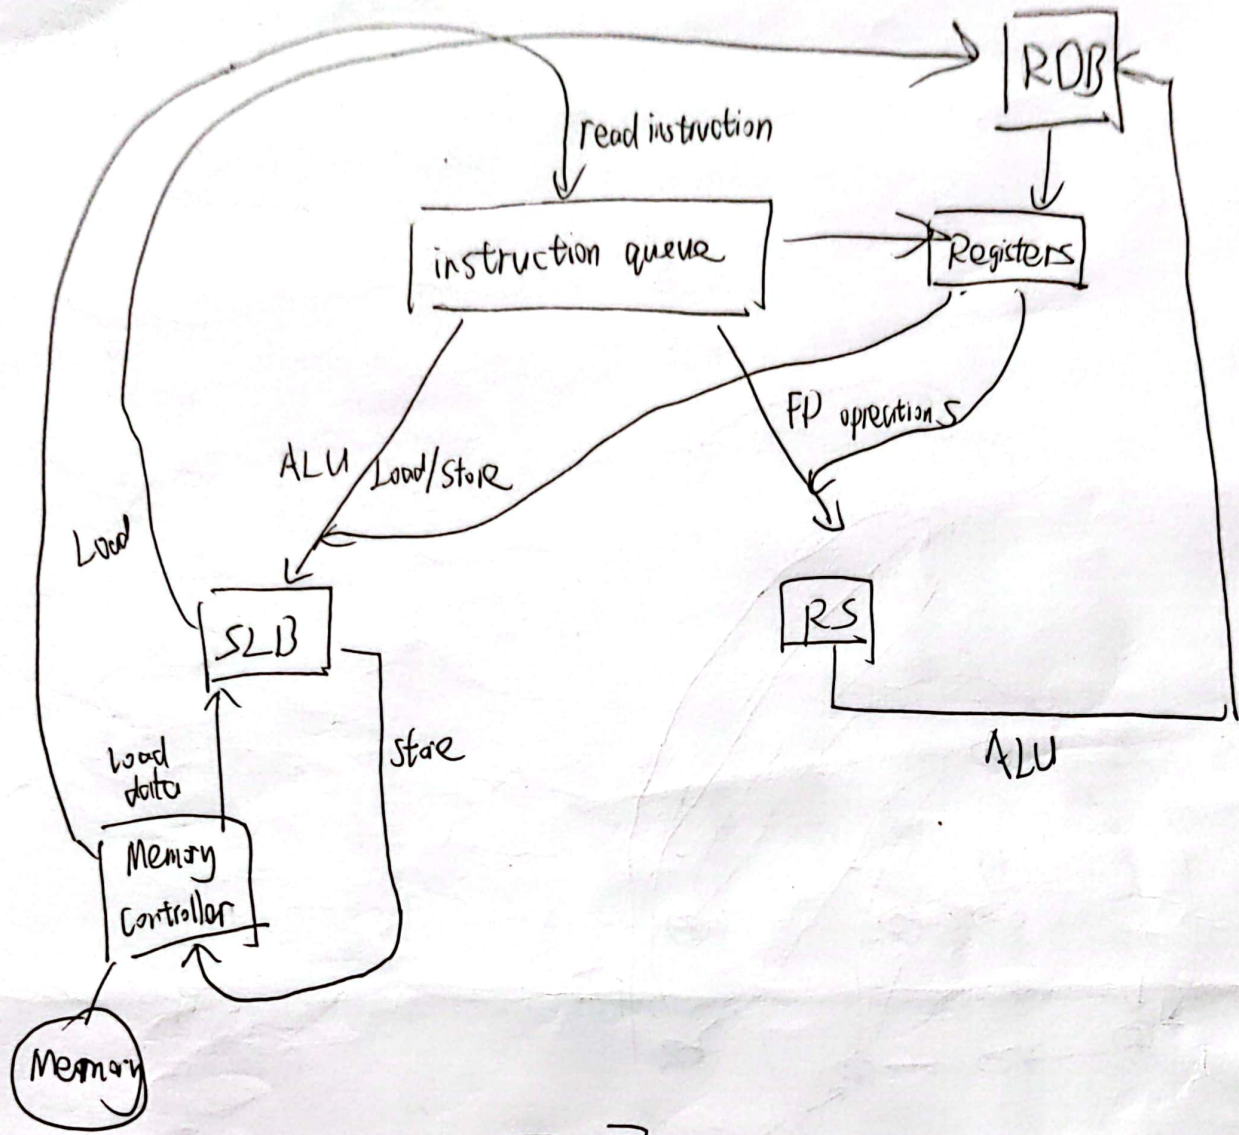 ROB
read instruction
instruction queue
Registers
FP oprections
ALU
Load/Store
Load
SLB
RS
Store
ALU
Load
data
Memory
Controller
Memory